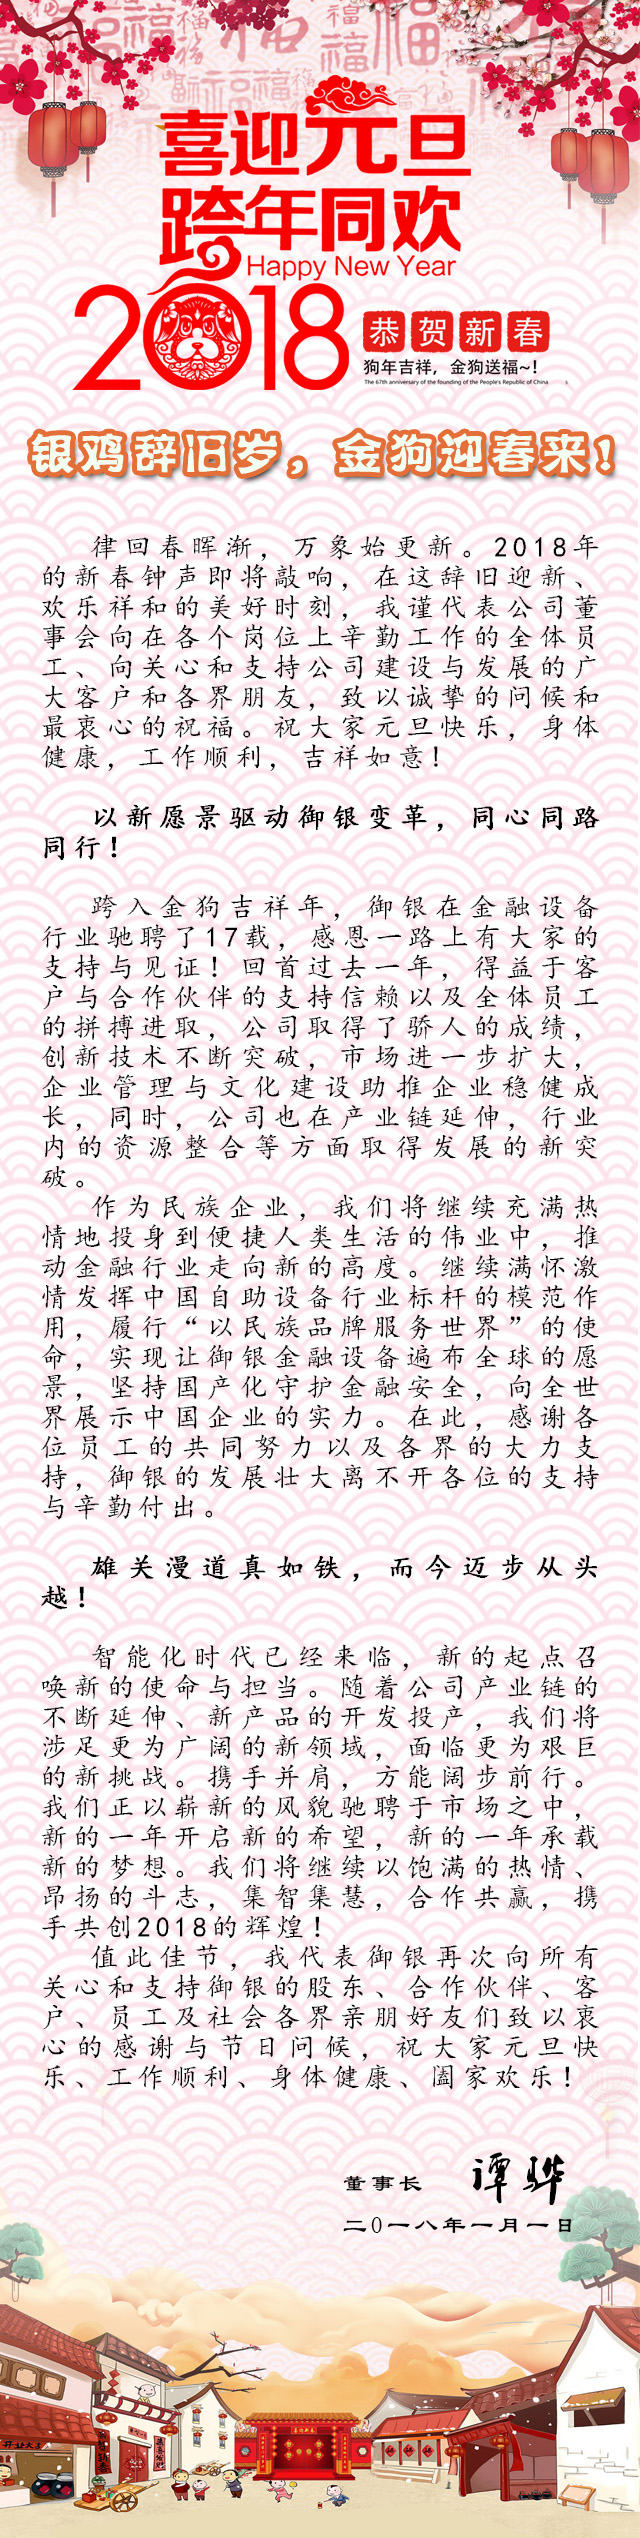 喜迎元旦
跨年同欢
Happy New Year
2018
恭贺新春
狗年吉祥，金狗送福~!
The 67th anniversary of the founding of the People's Republic of China
银鸡辞旧岁，金狗迎春来！
律回春晖渐，万象始更新。2018年
的新春钟声即将敲响，在这辞旧迎新、
欢乐祥和的美好时刻，我谨代表公司董
事会向在各个岗位上辛勤工作的全体员
工、向关心和支持公司建设与发展的广
大客户和各界朋友，致以诚挚的问候和
最衷心的祝福。祝大家元旦快乐，身体
健康，工作顺利，吉祥如意！
以新愿景驱动御银变革，同心同路
同行！
跨入金狗吉祥年，御银在金融设备
行业驰骋了17载，感恩一路上有大家的
支持与见证！回首过去一年，得益于客
户与合作伙伴的支持信赖以及全体员工
的拼搏进取，公司取得了骄人的成绩，
创新技术不断突破，市场进一步扩大，
企业管理与文化建设助推企业稳健成
长，同时，公司也在产业链延伸，行业
内的资源整合等方面取得发展的新突
破。
作为民族企业，我们将继续充满热
情地投身到便捷人类生活的伟业中，推
动金融行业走向新的高度。继续满怀激
情发挥中国自助设备行业标杆的模范作
用，履行“以民族品牌服务世界”的使
命，实现让御银金融设备遍布全球的愿
景，坚持国产化守护金融安全，向全世
界展示中国企业的实力。在此，感谢各
位员工的共同努力以及各界的大力支
持，御银的发展壮大离不开各位的支持
与辛勤付出。
雄关漫道真如铁，而今迈步从头
越！
智能化时代已经来临，新的起点召
唤新的使命与担当。随着公司产业链的
不断延伸、新产品的开发投产，我们将
涉足更为广阔的新领域，面临更为艰巨
的新挑战。携手并肩，方能阔步前行。
我们正以崭新的风貌驰骋于市场之中，
新的一年开启新的希望，新的一年承载
新的梦想。我们将继续以饱满的热情、
昂扬的斗志，集智集慧，合作共赢，携
手共创2018的辉煌！
值此佳节，我代表御银再次向所有
关心和支持御银的股东、合作伙伴、客
户、员工及社会各界亲朋好友们致以衷
心的感谢与节日问候，祝大家元旦快
乐、工作顺利、身体健康、阖家欢乐！
董事长 谭骅
二0一八年一月一日